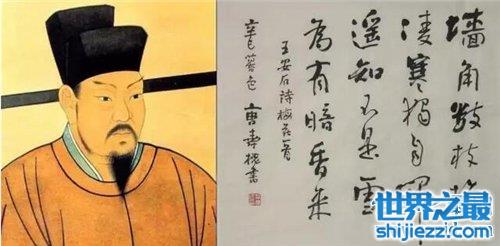 墙角数枝梅
凌寒独自開
遥知不是雪
為有暗香来
王安石诗梅花一首
世界之最